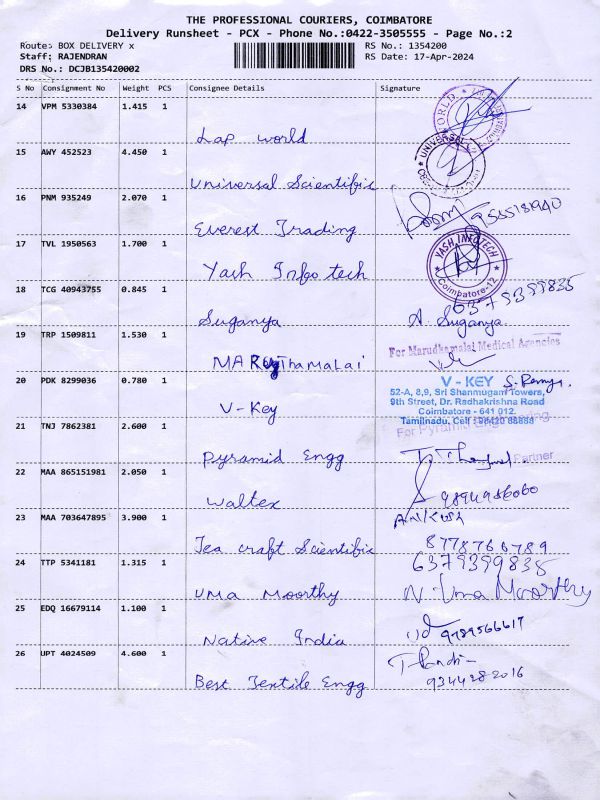 THE PROFESSIONAL COURIERS, COIMBATORE
Delivery Runsheet - PCX - Phone No.:0422-3505555 - Page No.:2
Route: BOX DELIVERY x
RS No.: 1354200
Staff: RAJENDRAN
RS Date: 17-Apr-2024
DRS No.: DCJB135420002
S No Consignment No Weight PCS Consignee Details Signature
14 VPM 5330384 1.415 1
Lap world
15 AWY 452523 4.450 1
UNIVERSAL
Universal Scientific
16 PNM 935249 2.070 1
Everest Trading
17 TVL 1950563 1.700 1
YASH INFOTECH
Coimbatore-12
Yash Infotech
18 TCG 40943755 0.845 1
6379399835
Suganya A. Suganya
19 TRP 1509811 1.530 1
For Marudhamalai Medical Agencies
MARuthamalai
20 PDK 8299036 0.780 1
V-KEY S. Ramya
52-A, 8,9, Sri Shanmugam Towers,
9th Street, Dr. Radhakrishna Road
Coimbatore - 641 012.
Tamilnadu, Cell : 98420 88888
V-Key
21 TNJ 7862381 2.600 1
For Pyramid Engineering
Partner
Pyramid Engg
22 MAA 865151981 2.050 1
9894986060
Waltex
23 MAA 703647895 3.900 1
8778766789
Tea craft Scientific
24 TTP 5341181 1.315 1
6379399835
Uma Moorthy N. Uma Moorthy
25 EDQ 16679114 1.100 1
9789566617
Native India
26 UPT 4024509 4.600 1
9344282016
Best Textile Engg